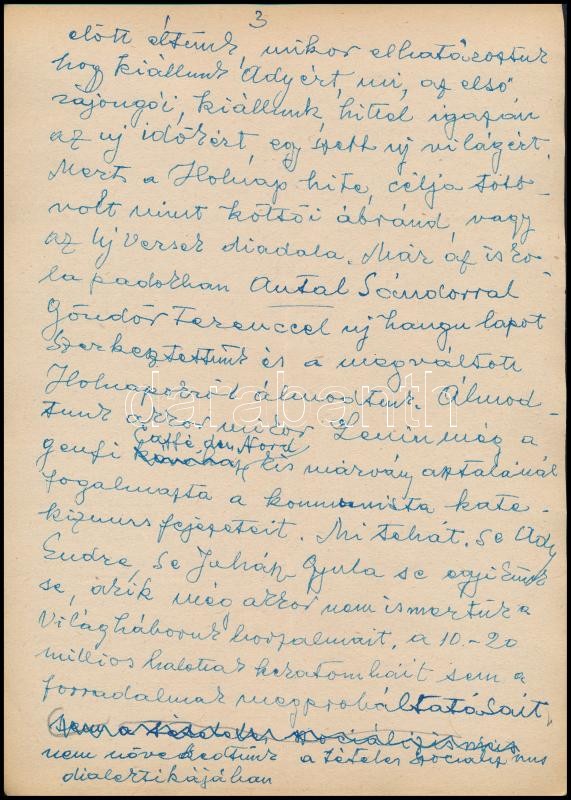 3
előtt éltünk, mikor elhatároztuk
hogy kiállunk Adyért, mi, az első
rajongói, kiállunk, hittel igazán
az uj időkért, egy szebb uj világért.
Mert a Holnap hite, célja több
volt mint költői ábránd, vagy
az uj versek diadala. Már az isko-
la padokban Antal Sándorral
Göndör Ferenccel uj hangu lapot
szerkesztettünk és a megváltott
Holnapokról álmodtunk. Álmod-
tunk akkor mikor Lenin még a
Caffé du Nord
genfi kis márvány asztalánál
fogalmazta a kommunista kate-
kizmus fejezeteit. Mi tehát, se Ady
Endre, se Juhász Gyula se egyikünk
se, akik még akkor nem ismertük a
Világháboruk borzalmait, a 10-20
milliós halottak hekatombáit sem a
forradalmak megpróbáltatásait,
nem növekedtünk a tételes socializmus
dialektikájában
darabanth